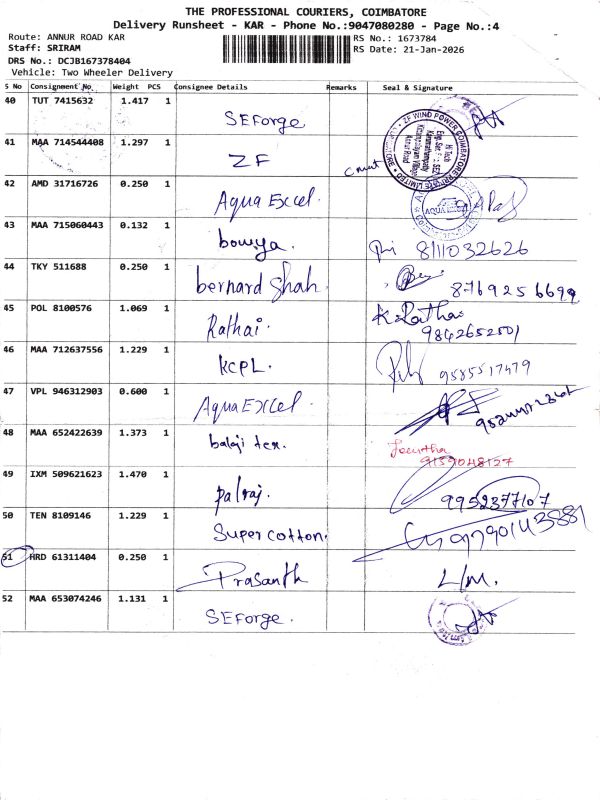 THE PROFESSIONAL COURIERS, COIMBATORE
Delivery Runsheet - KAR - Phone No.:9047080280 - Page No.:4
Route: ANNUR ROAD KAR
RS No.: 1673784
Staff: SRIRAM
RS Date: 21-Jan-2026
DRS No.: DCJB167378404
Vehicle: Two Wheeler Delivery
S No Consignment No Weight PCS Consignee Details Remarks Seal & Signature
40 TUT 7415632 1.417 1 SEForge
41 MAA 714544408 1.297 1 ZF
ZF WIND POWER COIMBATORE PRIVATE LIMITED
42 AMD 31716726 0.250 1 Aqua Excel.
43 MAA 715060443 0.132 1 bowya. 8111032626
44 TKY 511688 0.250 1 bernard shah. 8769256699
45 POL 8100576 1.069 1 Rathai. K. Rathai
9842652501
46 MAA 712637556 1.229 1 KCPL. 9585517479
47 VPL 946312903 0.600 1 Aqua Excel.
48 MAA 652422639 1.373 1 balaji tex.
9159048127
49 IXM 509621623 1.470 1 palraj. 9952377107
50 TEN 8109146 1.229 1 Super cotton.
51 HRD 61311404 0.250 1 Prasanth L/M.
52 MAA 653074246 1.131 1 SEForge.